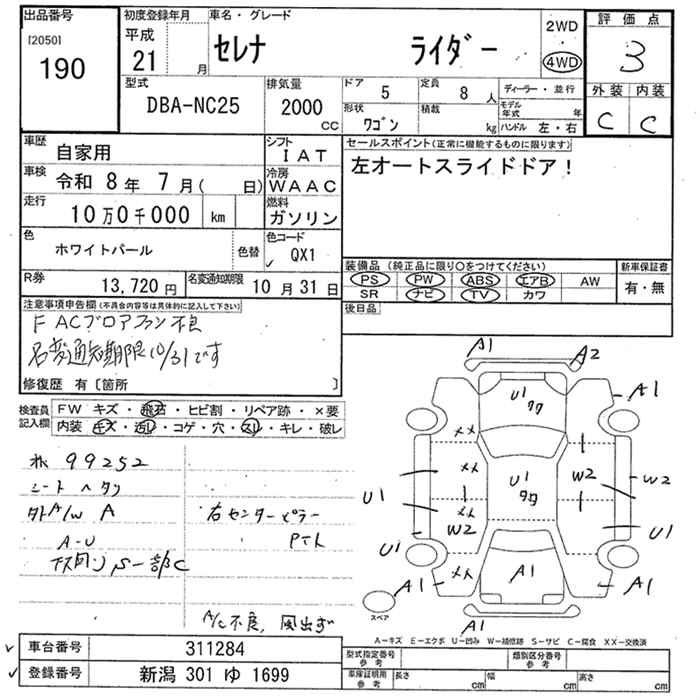 出品番号
[2050]
190
初度登録年月
平成
21 月
車名・グレード
セレナ ライダー
2WD
4WD
評価点
3
外装 内装
C C
型式
DBA-NC25
排気量
2000
CC
ドア
5
定員
8 人
形状
ワゴン
積載
kg
ディーラー・並行
モデル年式 年
ハンドル 左・右
車歴
自家用
シフト
IAT
車検
令和 8年 7月( 日)
冷房
WAAC
走行
10万0千000 km
燃料
ガソリン
色
ホワイトパール
色替
色コード
QX1
R券
13,720円
名変通知期限
10月31日
セールスポイント(正常に機能するものに限ります)
左オートスライドドア!
装備品(純正品に限り○をつけてください)
PS PW ABS エアB AW
SR ナビ TV カワ
新車保証書
有・無
後日品
注意事項申告欄(不具合内容等は具体的に記入して下さい)
F ACブロアファン不良
名変通知期限10/31です
修復歴 有〔箇所 〕
検査員記入欄
FW キズ・飛石・ヒビ割・リペア跡・×要
内装 キズ・汚レ・コゲ・穴・スレ・キレ・破レ
99252
シートヘタリ
外A/W A
A-U
下廻りS一部C
右センターピラー
A/C不良、風出ず
A1 A2
U1 A1
W2 W2
U1 U1
W2
U1 U1
A1 A1 A1
A1
スペア
A-キズ E-エクボ U-凹み W-補修跡 S-サビ C-腐食 XX-交換済
車台番号
311284
登録番号
新潟 301 ゆ 1699
型式指定番号
参考
類別区分番号
参考
車庫証明用
参考
長さ cm 幅 cm 高さ cm